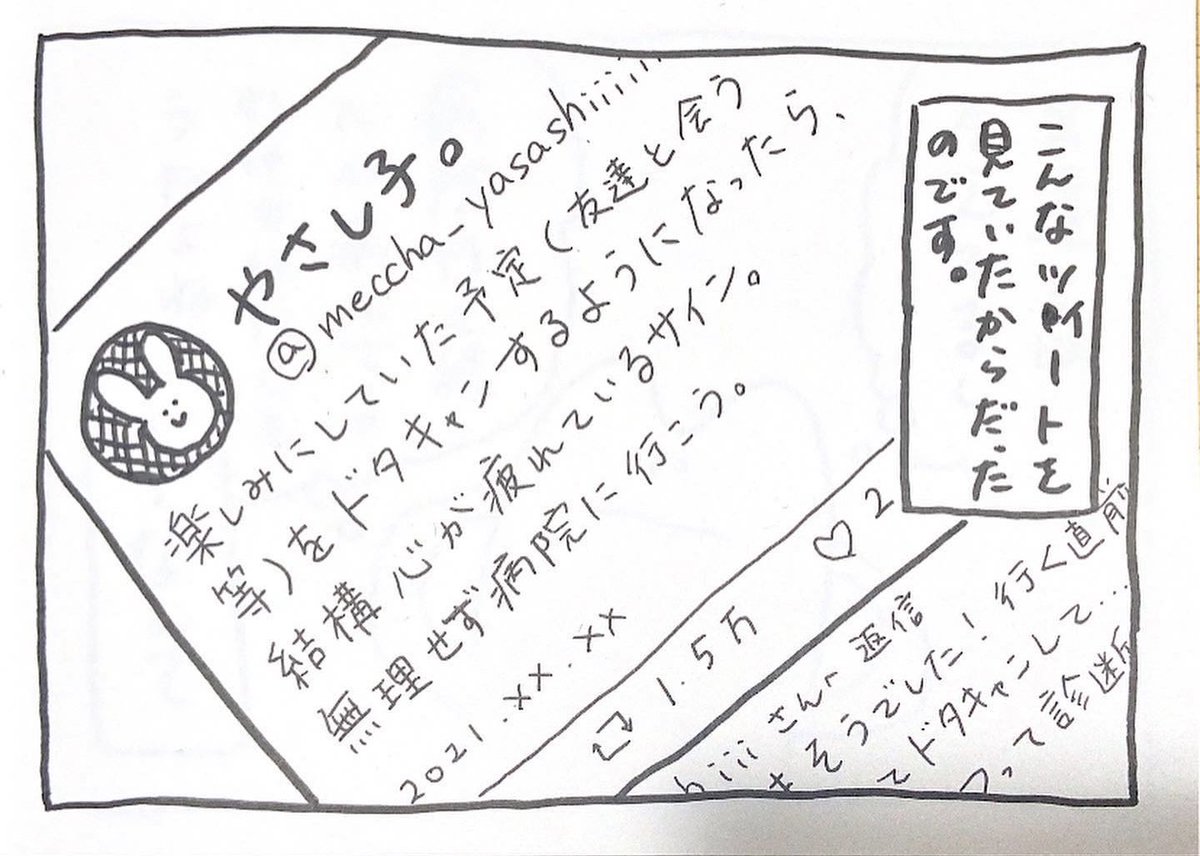 こんなツイートを
見ていたからだった
のです。
やさし子。
@meccha_yasashiiiii
楽しみにしていた予定(友達と会う
等)をドタキャンするようになったら、
結構心が疲れているサイン。
無理せず病院に行こう。
2021.××.××
1.5万
2
hiii さんへ返信
そうでした!行く直前
てドタキャンして...
って診断